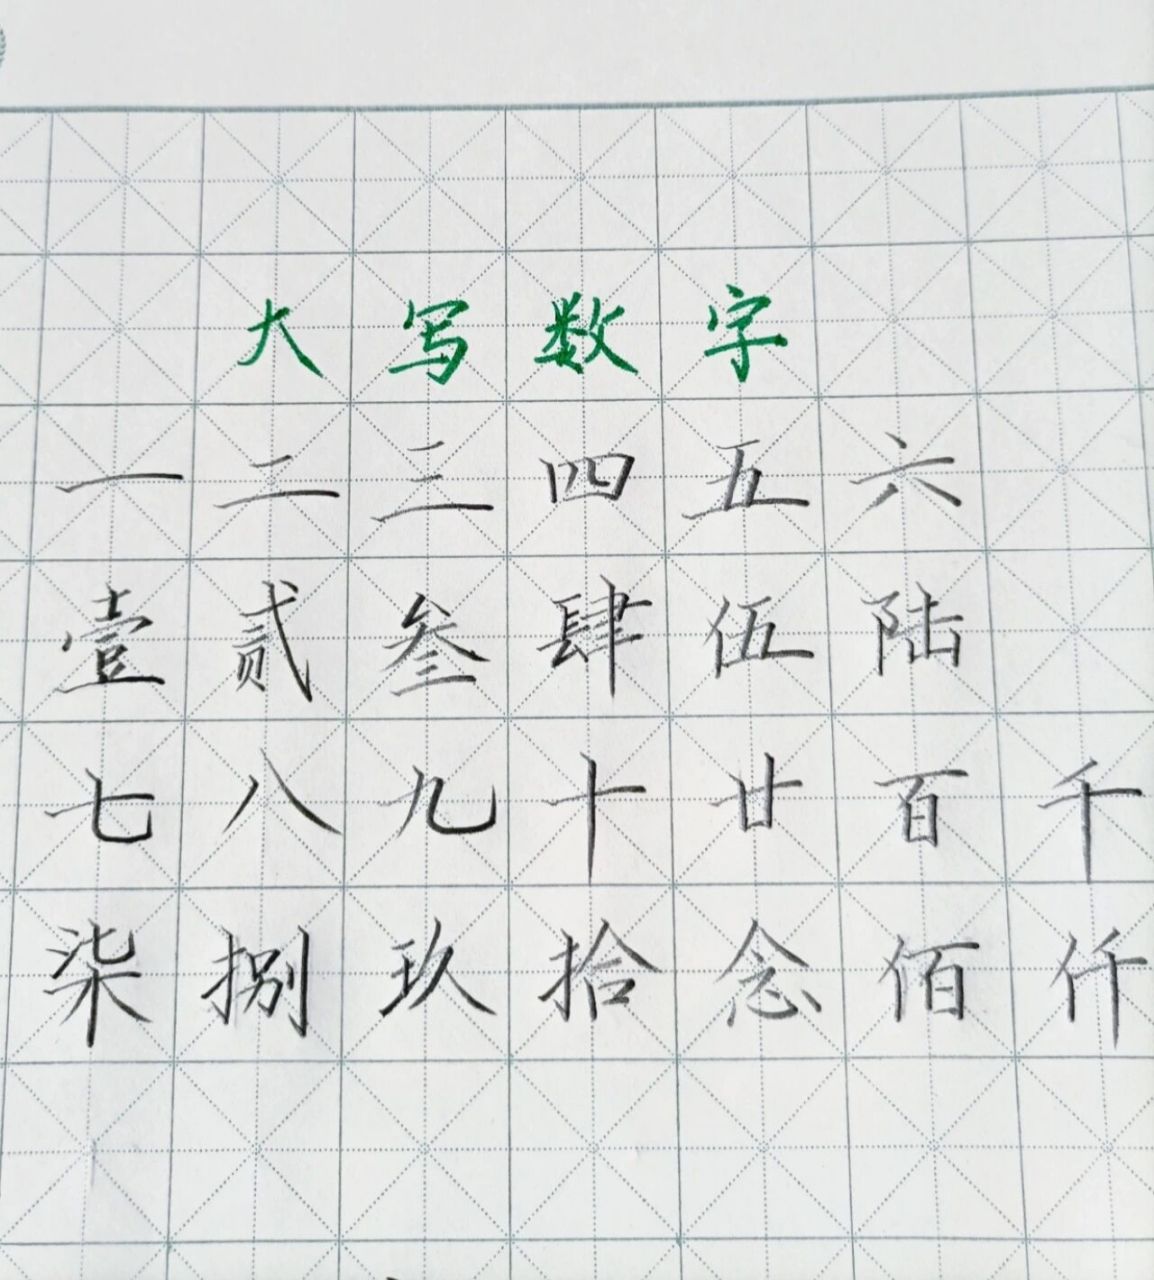 大写数字
一二三四五六
壹贰叁肆伍陆
七八九十廿百千
柒捌玖拾念佰仟